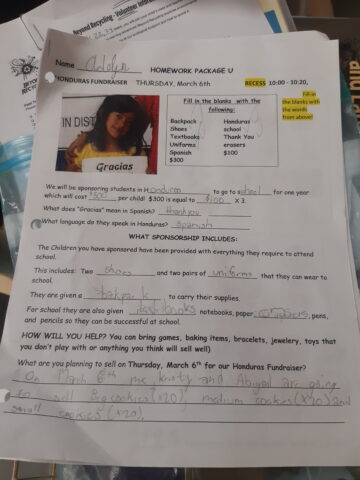 Beyond Recycling - Volunteer
Name
HOMEWORK PACKAGE U
HONDURAS FUNDRAISER THURSDAY, March 6th RECESS 10:00 - 10:20,
Fill in
the blanks with
the words
from above!
Fill in the blanks with the
following:
Backpack Honduras
Shoes school
Textbooks Thank You
Uniforms erasers
Spanish $100
$300
IN DIST
Gracias
We will be sponsoring students in Honduras to go to school for one year
which will cost $300 per child. $300 is equal to $100 X 3.
What does "Gracias" mean in Spanish? thank you
What language do they speak in Honduras? Spanish
WHAT SPONSORSHIP INCLUDES:
The Children you have sponsored have been provided with everything they require to attend
school.
This includes: Two shoes and two pairs of uniforms that they can wear to
school.
They are given a backpack to carry their supplies.
For school they are also given textbooks notebooks, paper, erasers, pens,
and pencils so they can be successful at school.
HOW WILL YOU HELP? You can bring games, baking items, bracelets, jewelery, toys that
you don't play with or anything you think will sell well)
What are you planning to sell on Thursday, March 6th for our Honduras Fundraiser?
On March 6th me, and Abigail are going
to sell big cookies (x20), medium cookies (x20) and
small cookies (x20).